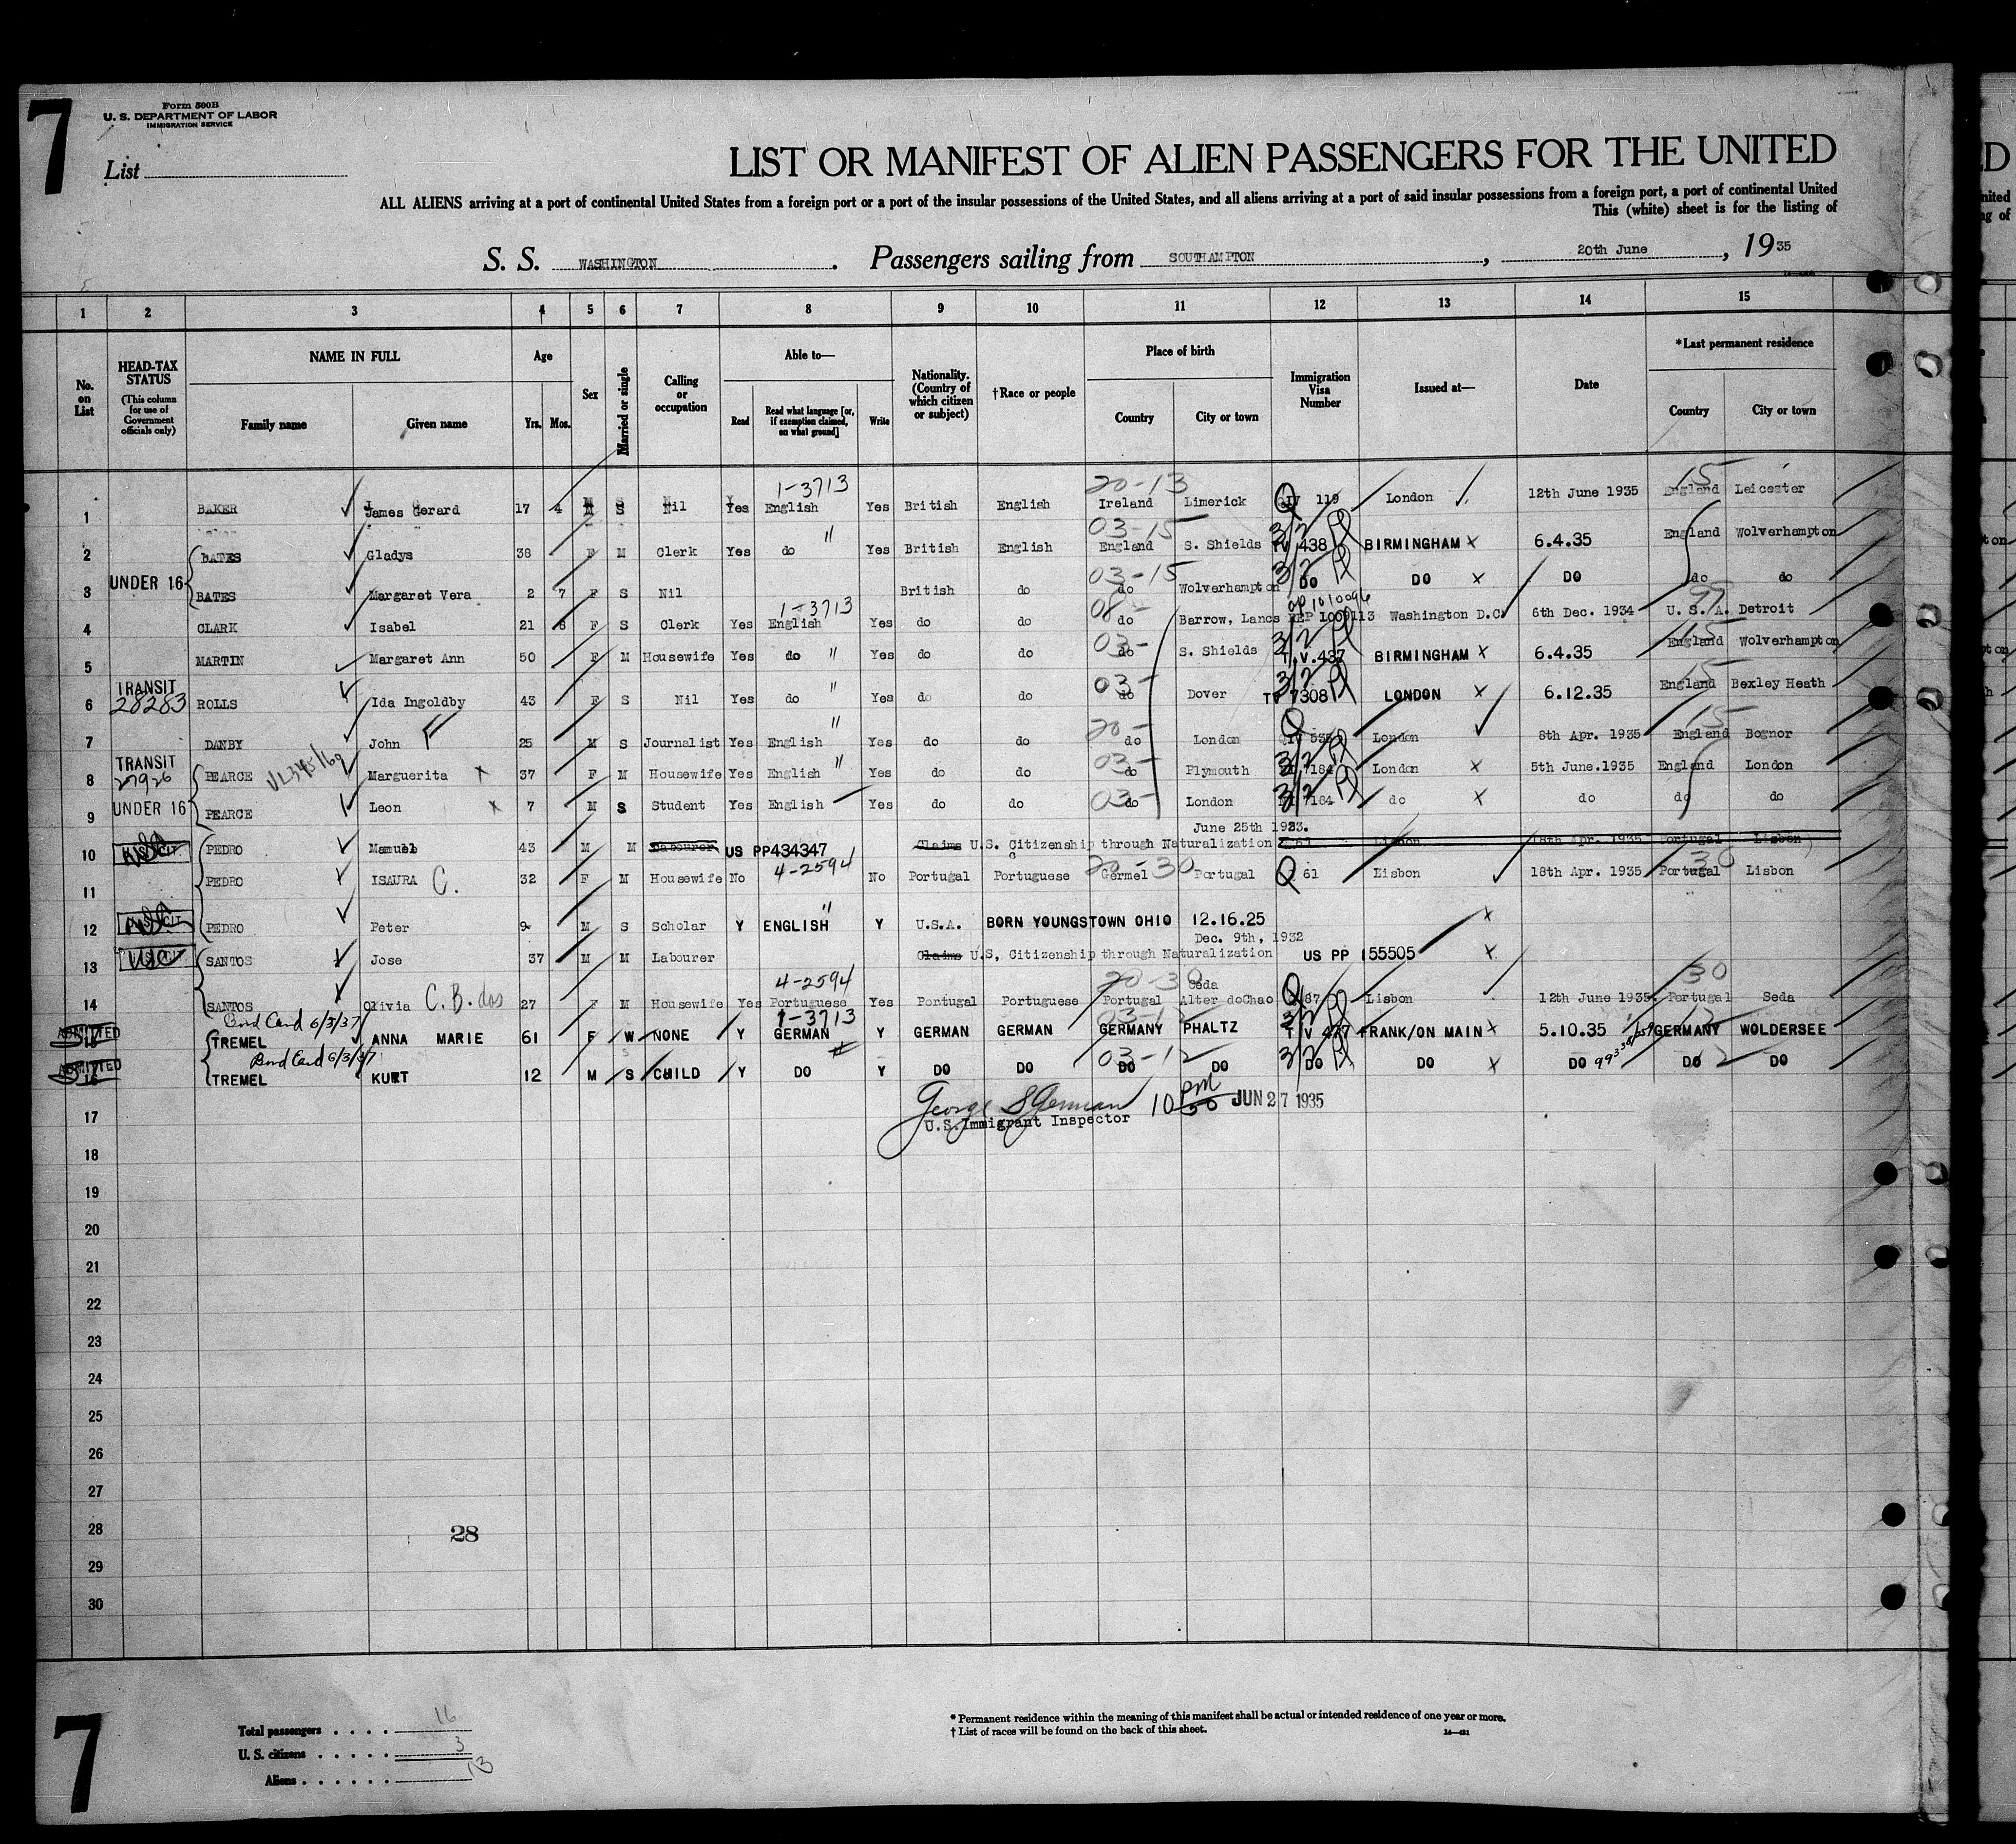 7
Form 500B
U. S. DEPARTMENT OF LABOR
IMMIGRATION SERVICE
List
LIST OR MANIFEST OF ALIEN PASSENGERS FOR THE UNITED
ALL ALIENS arriving at a port of continental United States from a foreign port or a port of the insular possessions of the United States, and all aliens arriving at a port of said insular possessions from a foreign port, a port of continental United
This (white) sheet is for the listing of
S. S. WASHINGTON. Passengers sailing from SOUTHAMPTON, 20th June, 1935
1 2 3 4 5 6 7 8 9 10 11 12 13 14 15
No. on List
HEAD-TAX STATUS (This column for use of Government officials only)
NAME IN FULL Family name Given name
Age Yrs. Mos.
Sex
Married or single
Calling or occupation
Able to— Read Read what language [or, if exemption claimed, on what ground] Write
Nationality. (Country of which citizen or subject)
†Race or people
Place of birth Country City or town
Immigration Visa Number
Issued at—
Date
*Last permanent residence Country City or town
1-3713 20-13 15
1 BAKER James Gerard 17 4 M S Nil Yes English Yes British English Ireland Limerick QIV 119 London 12th June 1935 England Leicester
" 03-15 3/2
2 BATES Gladys 38 F M Clerk Yes do Yes British English England S. Shields TV 438 BIRMINGHAM X 6.4.35 England Wolverhampton
03-15 3/2
UNDER 16
3 BATES Margaret Vera 2 7 F S Nil British do do Wolverhampton DO DO X DO do do
1-3713 08- OP 1010096 99
4 CLARK Isabel 21 8 F S Clerk Yes English Yes do do do Barrow, Lancs REP 1009113 Washington D.C. 6th Dec. 1934 U. S. A. Detroit
" 03- 3/2 15
5 MARTIN Margaret Ann 50 F M Housewife Yes do Yes do do do S. Shields T.V.437 BIRMINGHAM X 6.4.35 England Wolverhampton
TRANSIT " 03- 3/2 15
6 28283 ROLLS Ida Ingoldby 43 F S Nil Yes do Yes do do do Dover TV 7308 LONDON X 6.12.35 England Bexley Heath
" 20- Q 15
7 DANBY John F 25 M S Journalist Yes English Yes do do do London QIV 535 London 8th Apr. 1935 England Bognor
TRANSIT " 03- 3/2
8 27926 PEARCE Marguerita X 37 F M Housewife Yes English Yes do do do Plymouth 7184 London X 5th June.1935 England London
UNDER 16 03- 3/2
9 PEARCE Leon X 7 M S Student Yes English Yes do do do London 7184 do X do do do
June 25th 1923.
10 PEDRO Manuel 43 M M Labourer US PP434347 Claims U.S. Citizenship through Naturalization 61 Lisbon 18th Apr. 1935 Portugal Lisbon
4-2594 20-30 30
11 PEDRO ISAURA C. 32 F M Housewife No No Portugal Portuguese Germel Portugal Q 61 Lisbon 18th Apr. 1935 Portugal Lisbon
"
12 PEDRO Peter 9 M S Scholar Y ENGLISH Y U.S.A. BORN YOUNGSTOWN OHIO 12.16.25 X
Dec. 9th, 1932
13 USC SANTOS Jose 37 M M Labourer Claims U.S. Citizenship through Naturalization US PP 155505 X
4-2594 20-30 Seda 30
14 SANTOS Olivia C. B. dos 27 F M Housewife Yes Portuguese Yes Portugal Portuguese Portugal Alter doChao Q 87 Lisbon 12th June 1935. Portugal Seda
Bond Cand 6/3/37 1-3713 03-12 3/2 12
ADMITTED
15 TREMEL ANNA MARIE 61 F W NONE Y GERMAN Y GERMAN GERMAN GERMANY PHALTZ T V 477 FRANK/ON MAIN X 5.10.35 GERMANY WOLDERSEE
Bond Cand 6/3/37 03-12 3/2
ADMITTED
16 TREMEL KURT 12 M S CHILD Y DO Y DO DO DO DO DO DO X DO DO DO
George S German 10 50 PM JUN 27 1935
U.S.Immigrant Inspector
17
18
19
20
21
22
23
24
25
26
27
28 28
29
30
7
Total passengers . . . . 16
U. S. citizens . . . . . 3
Aliens . . . . . . 13
* Permanent residence within the meaning of this manifest shall be actual or intended residence of one year or more.
† List of races will be found on the back of this sheet.